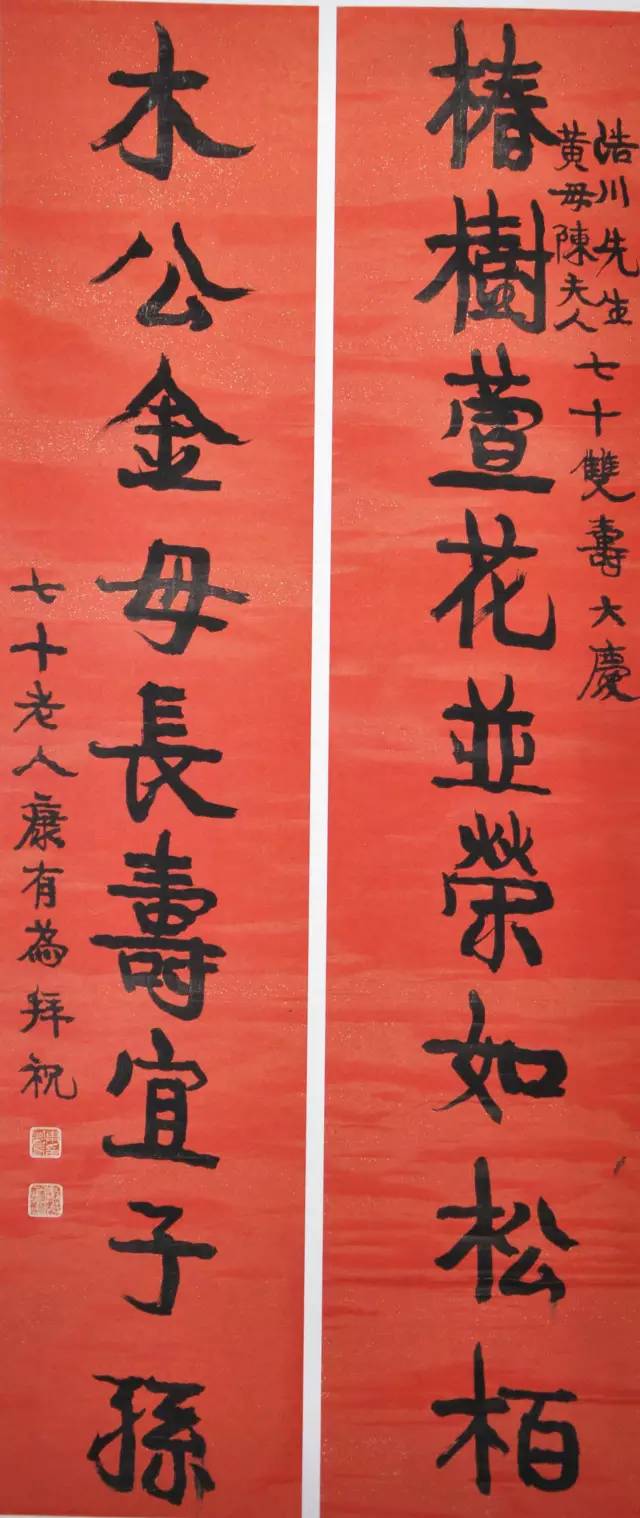 浩川先生
黄母陳夫人
七十雙壽大慶
椿樹萱花並榮如松柏
木公金母長壽宜子孫
七十老人康有為拜祝